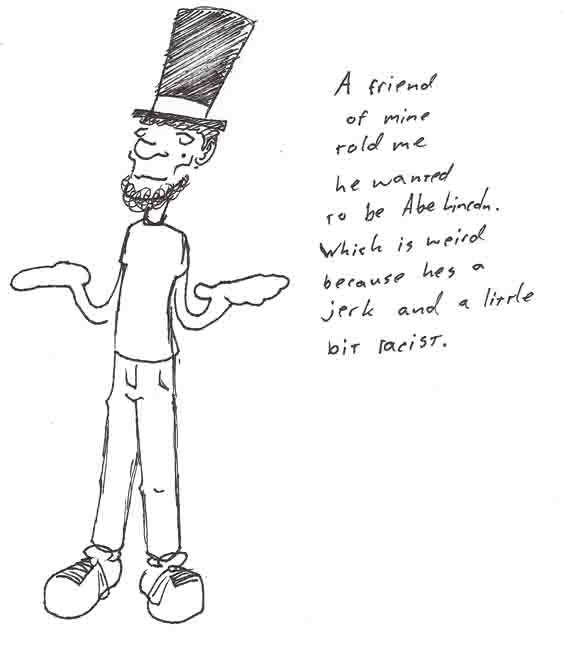 A friend
of mine
told me
he wanted
to be Abe Lincoln.
Which is weird
because hes a
jerk and a little
bit racist.